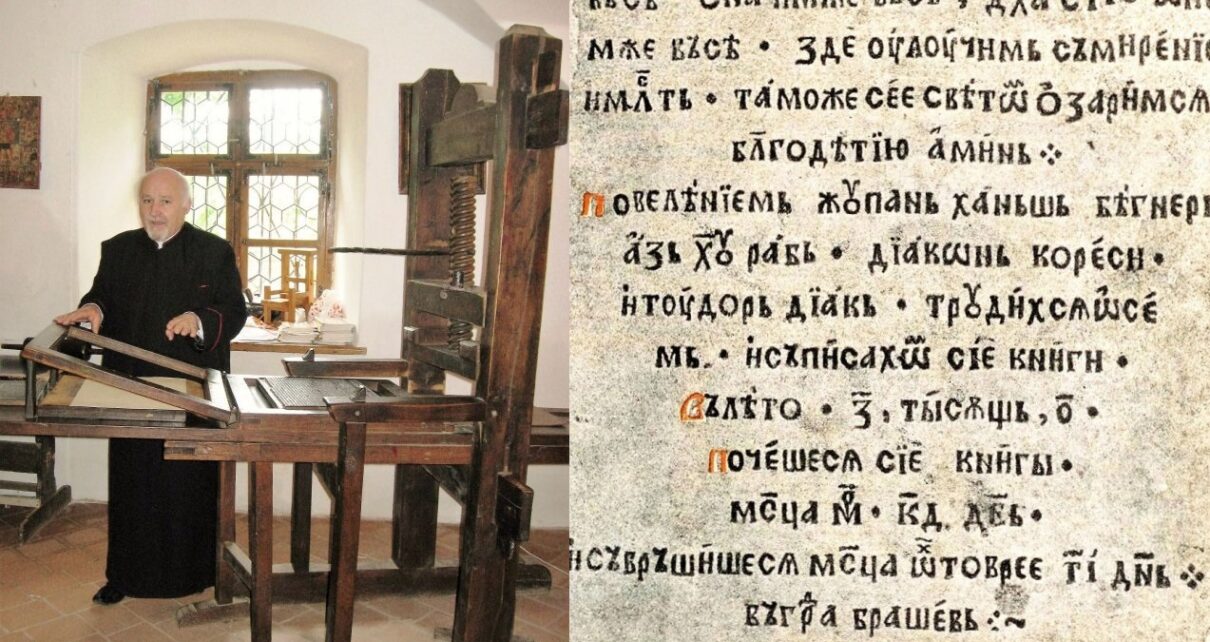 мже въсѣ · зде оу҆доу́чимь съмире́нїе
имл̑ть · та́може се́е свѣ́тѡ̅ ѻ҆зари́мсѧ
бл҃годѣ́тїю а҆ми́нь⁘
повелѣ́нїемь жꙋ́пань ха́ньшь бе́гнерь
а҆́зь хꙋ҃ ра́бь · дїа́кѡнь коре́си·
и҆тоу́дорь дїа́кь · трꙋди́хсѧѡ҆се́
мь · и҆съпи́сахѡ̅ сїѐ кни́ги ·
вълѣ́то · з҃, ты́сѧщь, о҃ ·
поче́шесѧ сїѐ кни́гы·
мс҃ца · к҃д. дн҃ь·
исъвръши́шесѧ мс҃ца ѡ̅товрее г҃і дн҃ь ⁘
въгра̑ браше́вь⁘~